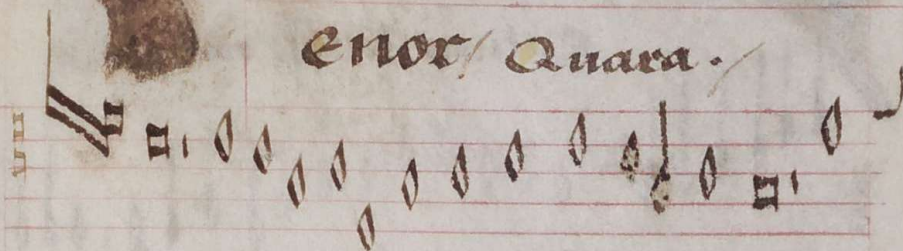 enor Quara.